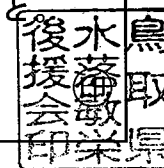 鳥取県
水落敏栄
後援会印